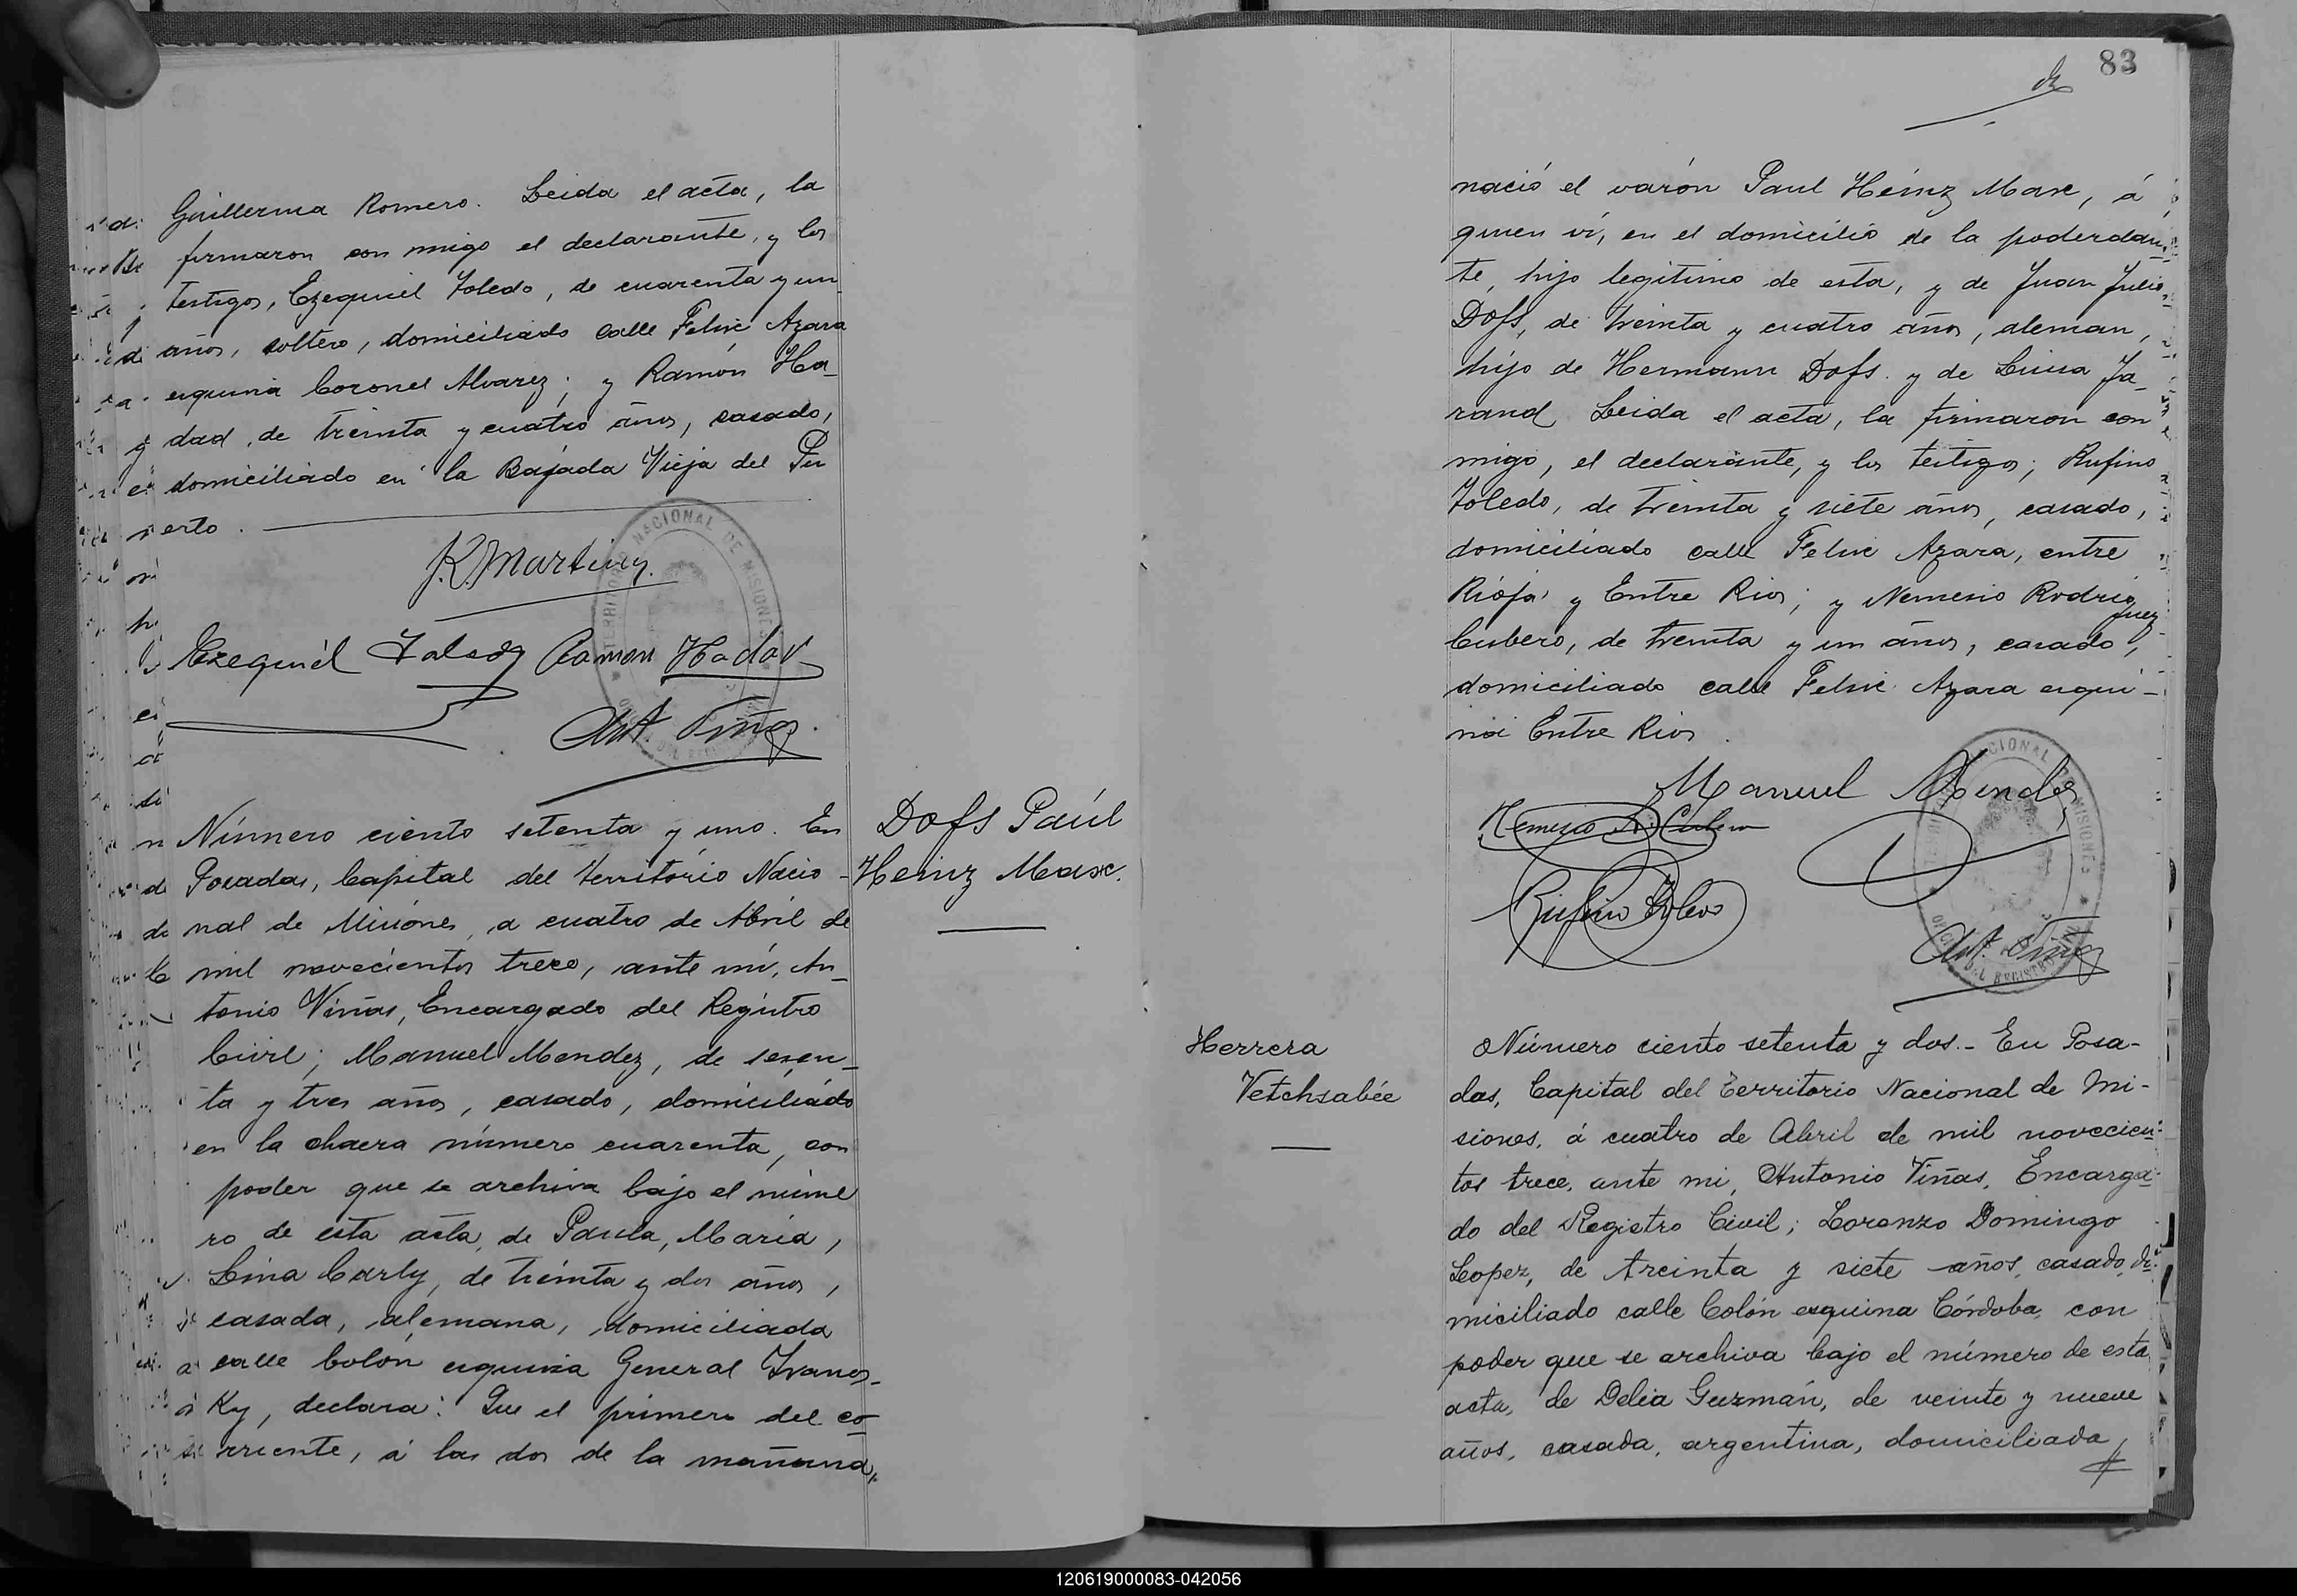 Guillerma Romero. Leida el acta, la
firmaron con migo el declarante, y los
testigos, Ezequiel Toledo, de cuarenta y un
años, soltero, domiciliado calle Felix Azara
esquina Coronel Alvarez; y Ramón Ha_
dad, de treinta y cuatro años, casado,
domiciliado en la Bajada Vieja del Pu
erto.
Ezequiél Toledo Ramon Hadad
Ant. Viñas
Número ciento setenta y uno. En
Posadas, Capital del Territorio Nacio-
nal de Misiones, a cuatro de Abril de
mil novecientos trece, ante mí, An_
tonio Viñas, Encargado del Registro
Civil; Manuel Mendez, de sesen_
ta y tres años, casado, domiciliado
en la chacra número cuarenta, con
poder que se archiva bajo el núme
ro de esta acta, de Paula, María,
Lina Carly, de treinta y dos años,
casada, alemana, domiciliada
calle Colón esquina General Ivanos_
Ky, declara: Que el primero del co_
rriente, á las dos de la mañana,
Dofs Paúl
Heinz Max.
83
nació el varón Paul Heinz Max, á
quien ví, en el domicilio de la poderdan_
te, hijo legitimo de esta, y de Juan Julio
Dofs, de treinta y cuatro años, aleman,
hijo de Hermann Dofs. y de Luisa Ja_
rand. Leida el acta, la firmaron con
migo, el declarante, y los testigos; Rufino
Toledo, de treinta y siete años, casado,
domiciliado calle Felix Azara, entre
Rioja y Entre Rios; y Nemesio Rodriguez
Cubero, de treinta y un años, casado,
domiciliado calle Felix Azara esqui-
na Entre Rios.
Manuel Mendez
Nemesio R. Cubero
Rufino Toledo
Ant. Viñas
Herrera
Vetchsabée
Número ciento setenta y dos.- En Posa-
das, Capital del Territorio Nacional de Mi-
siones, á cuatro de Abril de mil novecien-
tos trece, ante mi, Antonio Viñas, Encarga-
do del Registro Civil; Lorenzo Domingo
Lopez, de treinta y siete años, casado, do-
miciliado calle Colón esquina Córdoba, con
poder que se archiva bajo el número de esta
acta, de Delia Guzmán, de veinte y nueve
años, casada, argentina, domiciliada
120619000083-042056